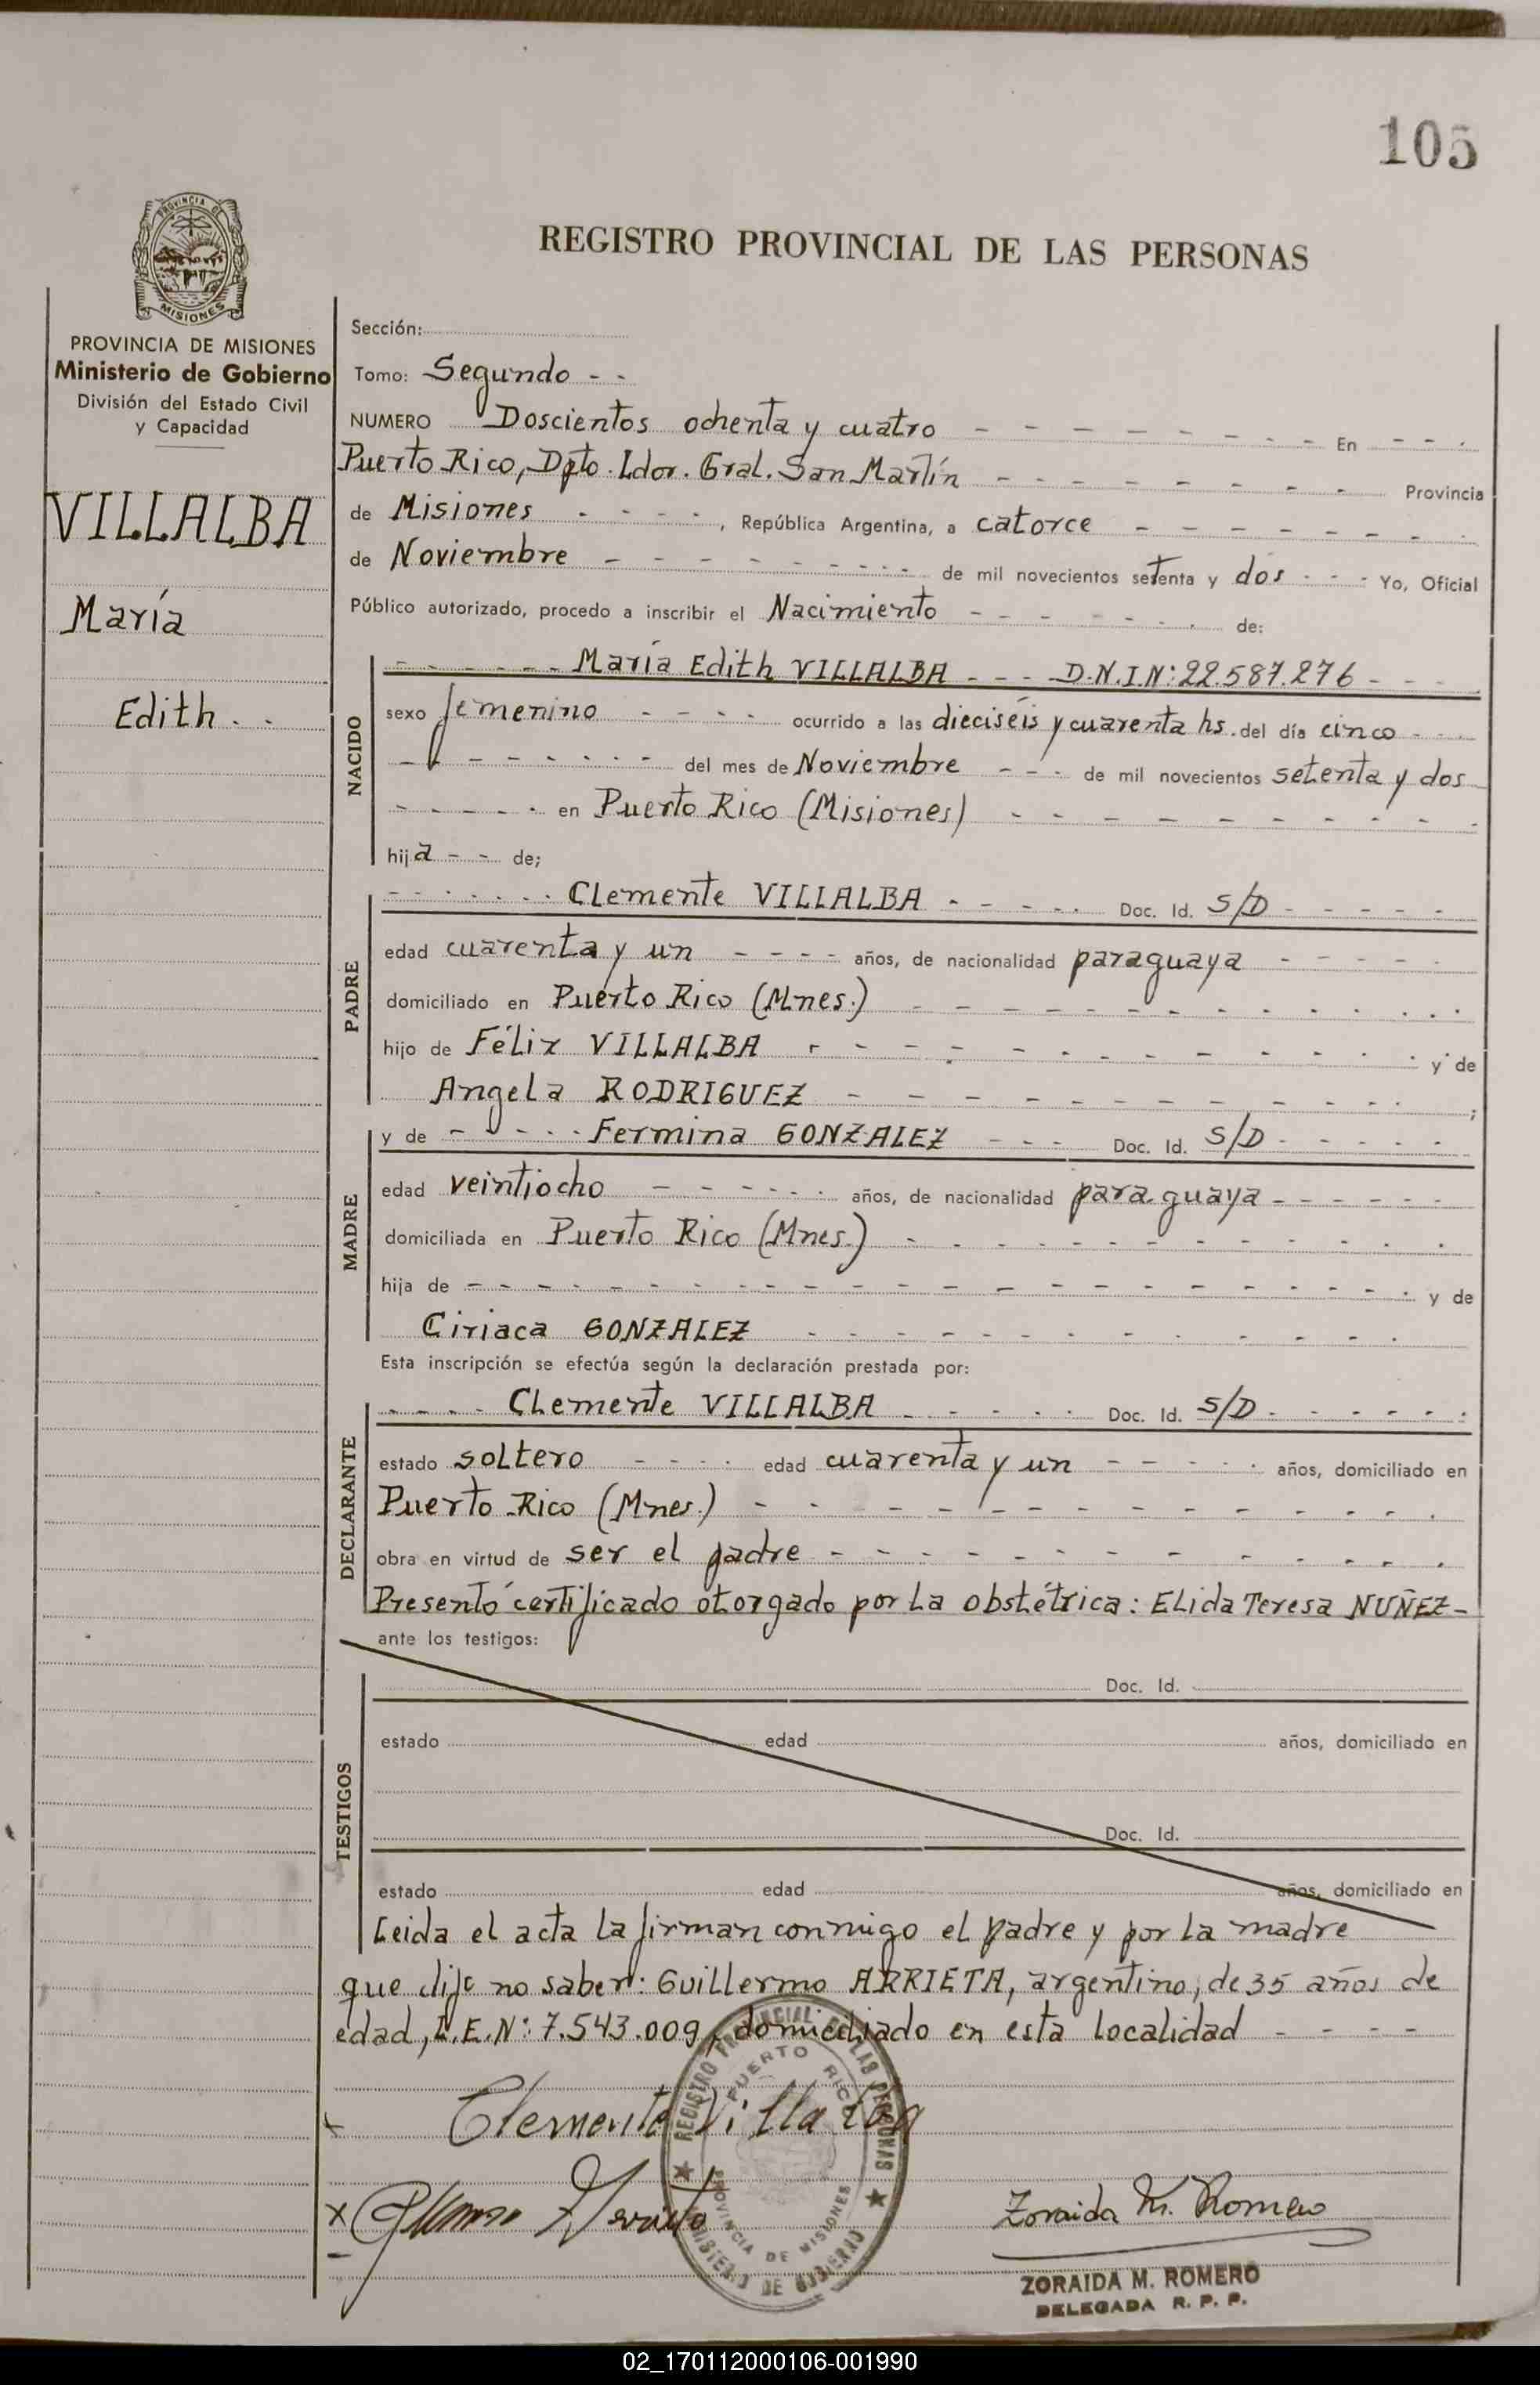 105
PROVINCIA DE
MISIONES
REGISTRO PROVINCIAL DE LAS PERSONAS
PROVINCIA DE MISIONES
Ministerio de Gobierno
División del Estado Civil
y Capacidad
VILLALBA
María
Edith
Sección:
Tomo: Segundo - -
NUMERO Doscientos ochenta y cuatro - - - - - - - - En - - -
Puerto Rico, Dpto. Ldor. Gral. San Martín - - - - - - - - Provincia
de Misiones - - - -, República Argentina, a catorce - - - - - - -
de Noviembre - - - - - - - - de mil novecientos setenta y dos - - - Yo, Oficial
Público autorizado, procedo a inscribir el Nacimiento - - - - - - - de:
NACIDO
- - - - - - María Edith VILLALBA - - - D.N.I.N: 22.587.276 - - -
sexo femenino - - - - ocurrido a las dieciséis y cuarenta hs. del día cinco - - -
- - - - - - - del mes de Noviembre - - - de mil novecientos setenta y dos
- - - - - en Puerto Rico (Misiones) - - - - - - - - - -
hija - - de;
PADRE
- - - - - - Clemente VILLALBA - - - - - Doc. Id. S/D - - - - -
edad cuarenta y un - - - - años, de nacionalidad paraguaya - - - - -
domiciliado en Puerto Rico (Mnes.) - - - - - - - - - - - -
hijo de Félix VILLALBA - - - - - - - - - - - - y de
Angela RODRIGUEZ - - - - - - - - - - - ;
MADRE
y de - - - - - Fermina GONZALEZ - - - Doc. Id. S/D - - - - -
edad veintiocho - - - - - - años, de nacionalidad paraguaya - - - - - -
domiciliada en Puerto Rico (Mnes.) - - - - - - - - - - - -
hija de - - - - - - - - - - - - - - - - - - - - y de
Ciriaca GONZALEZ - - - - - - - - - - -
Esta inscripción se efectúa según la declaración prestada por:
DECLARANTE
- - - - Clemente VILLALBA - - - - - Doc. Id. S/D - - - - - -
estado soltero - - - - edad cuarenta y un - - - - - años, domiciliado en
Puerto Rico (Mnes.) - - - - - - - - - - - - -
obra en virtud de ser el padre - - - - - - - - - - - -
Presentó certificado otorgado por la obstétrica: Elida Teresa NUÑEZ-
ante los testigos:
TESTIGOS
Doc. Id.
estado edad años, domiciliado en
Doc. Id.
estado edad años, domiciliado en
Leida el acta la firman conmigo el padre y por la madre
que dijo no saber: Guillermo ARRIETA, argentino, de 35 años de
edad, L.E.N: 7.543.009, domiciliado en esta localidad - - - -
REGISTRO PROVINCIAL DE LAS PERSONAS
PUERTO RICO
PROVINCIA DE MISIONES
MINISTERIO DE GOBIERNO
Clemente Villalba
x
Zoraida M. Romero
ZORAIDA M. ROMERO
DELEGADA R. P. P.
02_170112000106-001990